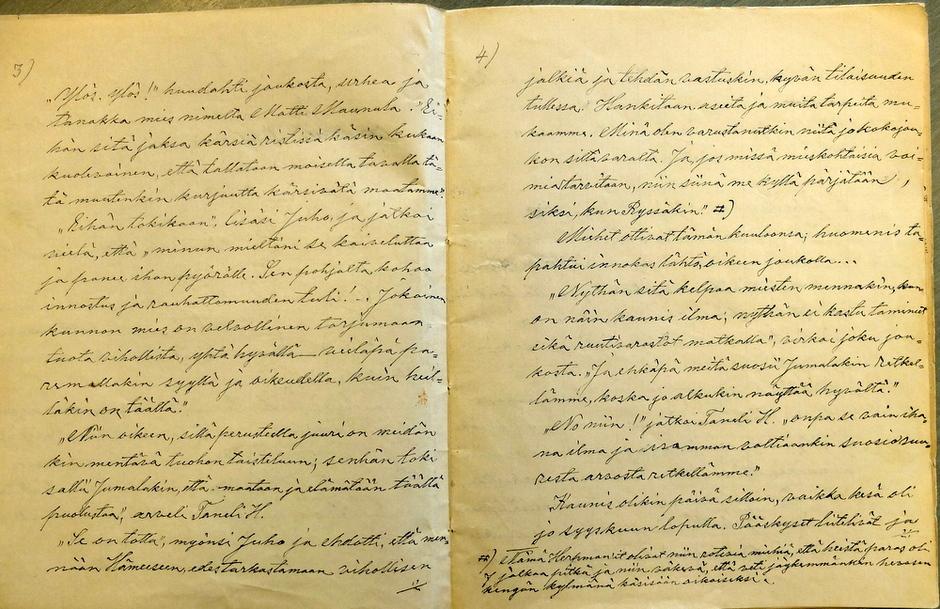 3)
„Ylös, ylös!" huudahti joukosta, urhea ja
tanakka mies nimeltä Matti Maunula. „Ei-
hän sitä jaksa kärsiä ristissä käsin kukaan
kuolevainen, että tallataan moisella tavalla tä-
tä muutenkin kurjuutta kärsivätä maatamme."
„Eihän tokikaan", lisäsi Juho, ja jatkoi
vielä, että „minun mieltäni se kaiveluttaa
ja panee ihan pyörälle. Sen pohjalta kohoa
innostus ja rauhattomuuden tuli! - . Jokainen
kunnon mies on velvollinen torjumaan
tuota vihollista, yhtä hyvällä — vieläpä pa-
remmallakin syyllä ja oikeudella, kuin heil-
läkin on täällä."
„Niin oikein, sillä perusteella juuri on meidän-
kin mentävä tuohon taisteluun; senhän toki
sallii Jumalakin, että maataan ja elämätään täällä
puolustaa", arveli Taneli H.
„Se on totta", myönsi Juho ja ehdotti, että men-
nään Hämeeseen, edestarkastamaan vihollisen
4)
jälkiä ja tehdän vastuskin, hyvän tilaisuuden
tullessa. Hankitaan aseita ja muita tarpeita mu-
kaamme. Minä olen varustanutkin niitä jo koko jou-
kon siltä varalta. Ja, jos missä mieskohtaisia voi-
mia tarvitaan, niin siinä me kyllä pärjätään,
siksi, kun Ryssäkin." #)
Miehet ottivat tämän kuuloonsa; huomenis ta-
pahtui innokas lähtö, oikeen joukolla...
„Nythän sitä kelpaa miesten mennäkin, kun
on näin kaunis ilma; nythän ei kastu tamineet
sikä ruutivarastot matkalla", virkoi joku jou-
kosta. „Ja ehkäpä meitä suosii Jumalakin retkel-
lämme, koska jo alkukin näyttää hyvältä."
„No niin!" jatkoi Taneli H. „onpa se vain iha-
na ilma ja isamman valtiaankin suosio suu-
resta arvosta retkellämme."
Kaunis olikin päivä silloin, vaikka kesä oli
jo syyskuun lopulla. Pääskyset liitelivät ja
#) Nämä Herkmanit olivat niin roteria miehiä, että heistä paras oli
7 jalkaa pitkä ja niin väkevä, että veti jäykemmänkin hevosen
kengän kylmänä käsisään oikaiseksi.